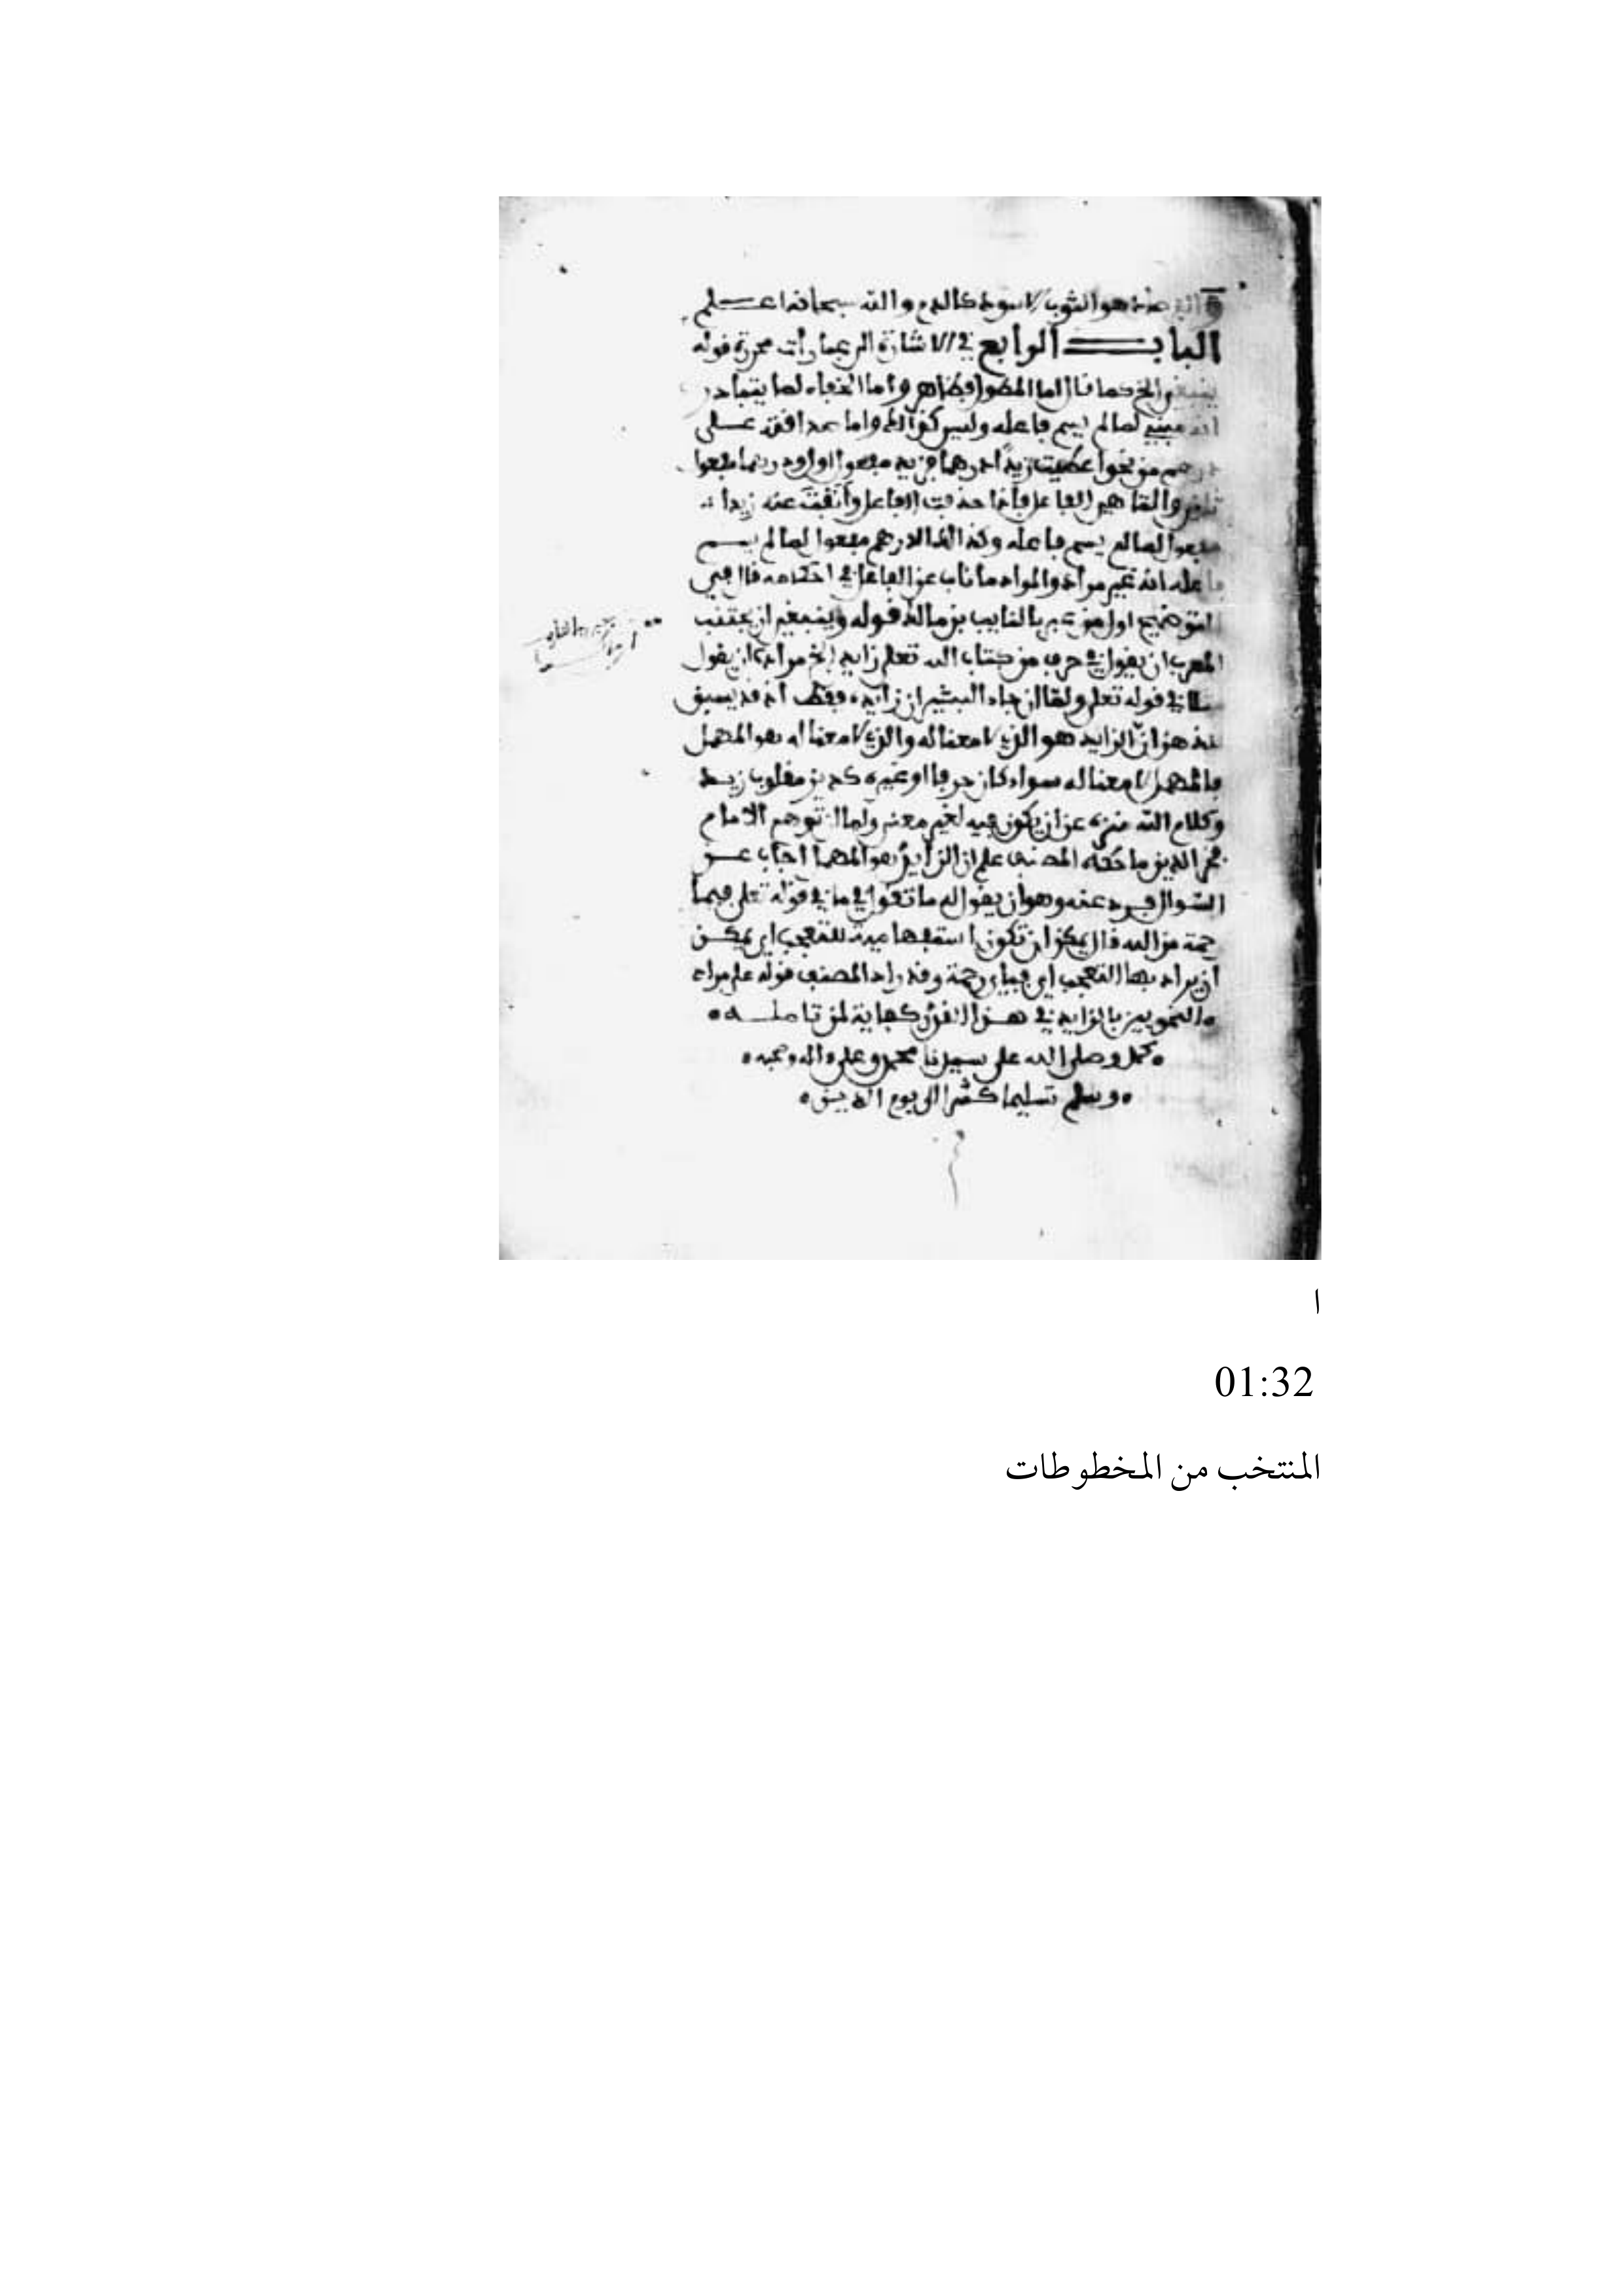 هو الثوب الاسود كالدم والله سبحانه اعلم
الباب الرابع في الاشارة الى عبارات محررة قوله
الخ كما قال اما الطول فظاهر واما الخفاء لما يتبادر
لما لم يسم فاعله وليس كذلك واما
من نحو اعطيت زيدا درهما فزيد مفعول اول ودرهما مفعول
والتاء هي الفاعل فاذا حذفت الفاعل وأنَبْتَ عنه زيدا
مفعول لما لم يسم فاعله وكذلك الدرهم مفعول لما لم يسم
فاعله انه غير مراد والمراد ما ناب عن الفاعل في احكامه قال في
التوضيح اول من عبر بالنايب بن مالك قوله وينبغي ان يجتنب
المعرب ان يقول في حرف من كتاب الله تعلى زايد الخ مراده ان يقول
في قوله تعلى ولما ان جاء البشير ان زايدة فقط انه قد يسبق
ان الزايد هو الذي لا معنا له والذي لا معنا له هو المهمل
فالمهمل لا معنا له سواء كان حرفا او غيره كديز مقلوب زيد
وكلام الله منزه عن ان يكون فيه لغير معنى ولما ان توهم الامام
فخر الدين ما المصنف على ان الزايد هو المهمل اجاب عن
السوال عنه وهو ان يقول له ما تقول في ما في قوله تعلى فبما
رحمة من الله قال يمكن ان تكون استفهامية للتعجب اي يمكن
ان يراد بها التعجب اي فباي رحمة وقد زاد المصنف قوله على مراد
النحويين بالزايد في هذا القدر كفاية لمن تامله
كمل وصلى الله على سيدنا محمد وعلى ءاله وصحبه
وسلم تسليما كثيرا الى يوم الدين
ا
01:32
المنتخب من المخطوطات